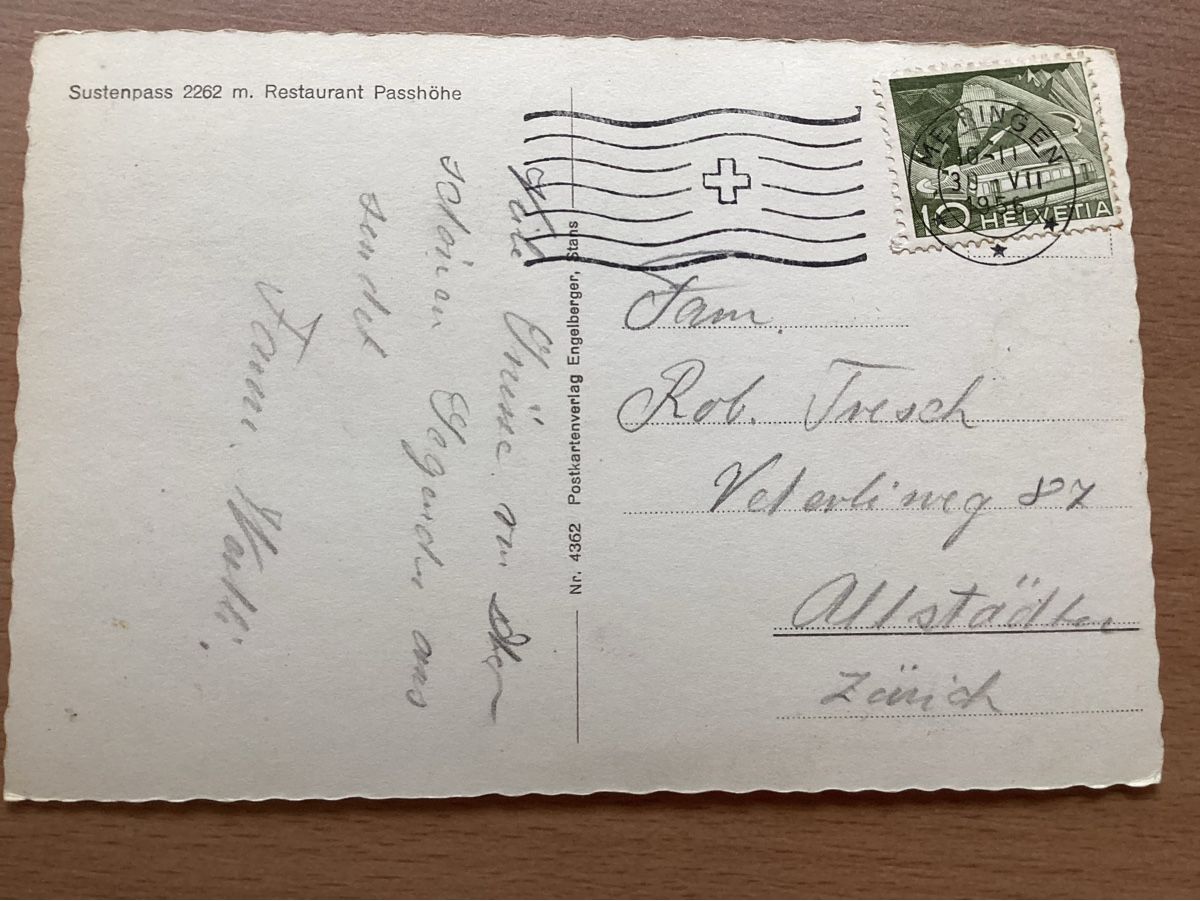 Sustenpass 2262 m. Restaurant Passhöhe
Gute Grüsse von der
schönen Gegend aus
sendet
Famm.
Nr. 4362 Postkartenverlag Engelberger, Stans
MEIRINGEN
30-VII
1956
10 HELVETIA
Fam.
Rob. Tresch
Veterliweg 87
Altstädten
Zürich